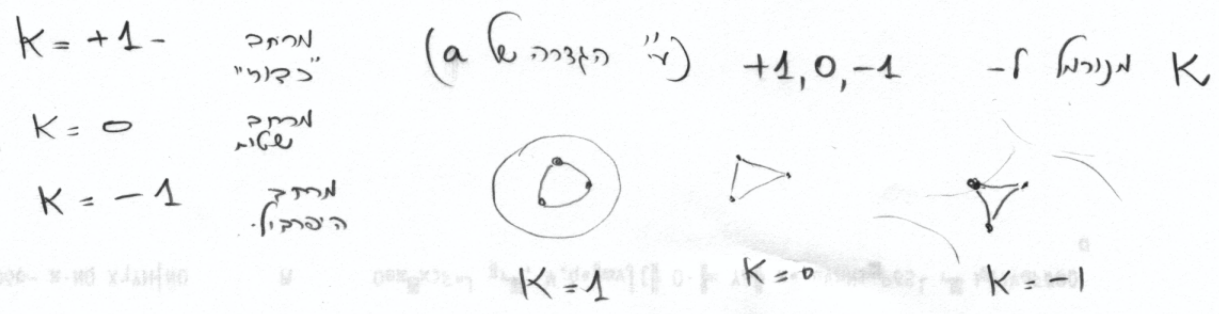 K מנורמל ל- +1, 0, -1 (ע"י הגדרה של a)
K = +1 - מרחב "כדורי"
K = 0 מרחב שטוח
K = -1 מרחב היפרבולי.
K = 1 K = 0 K = -1